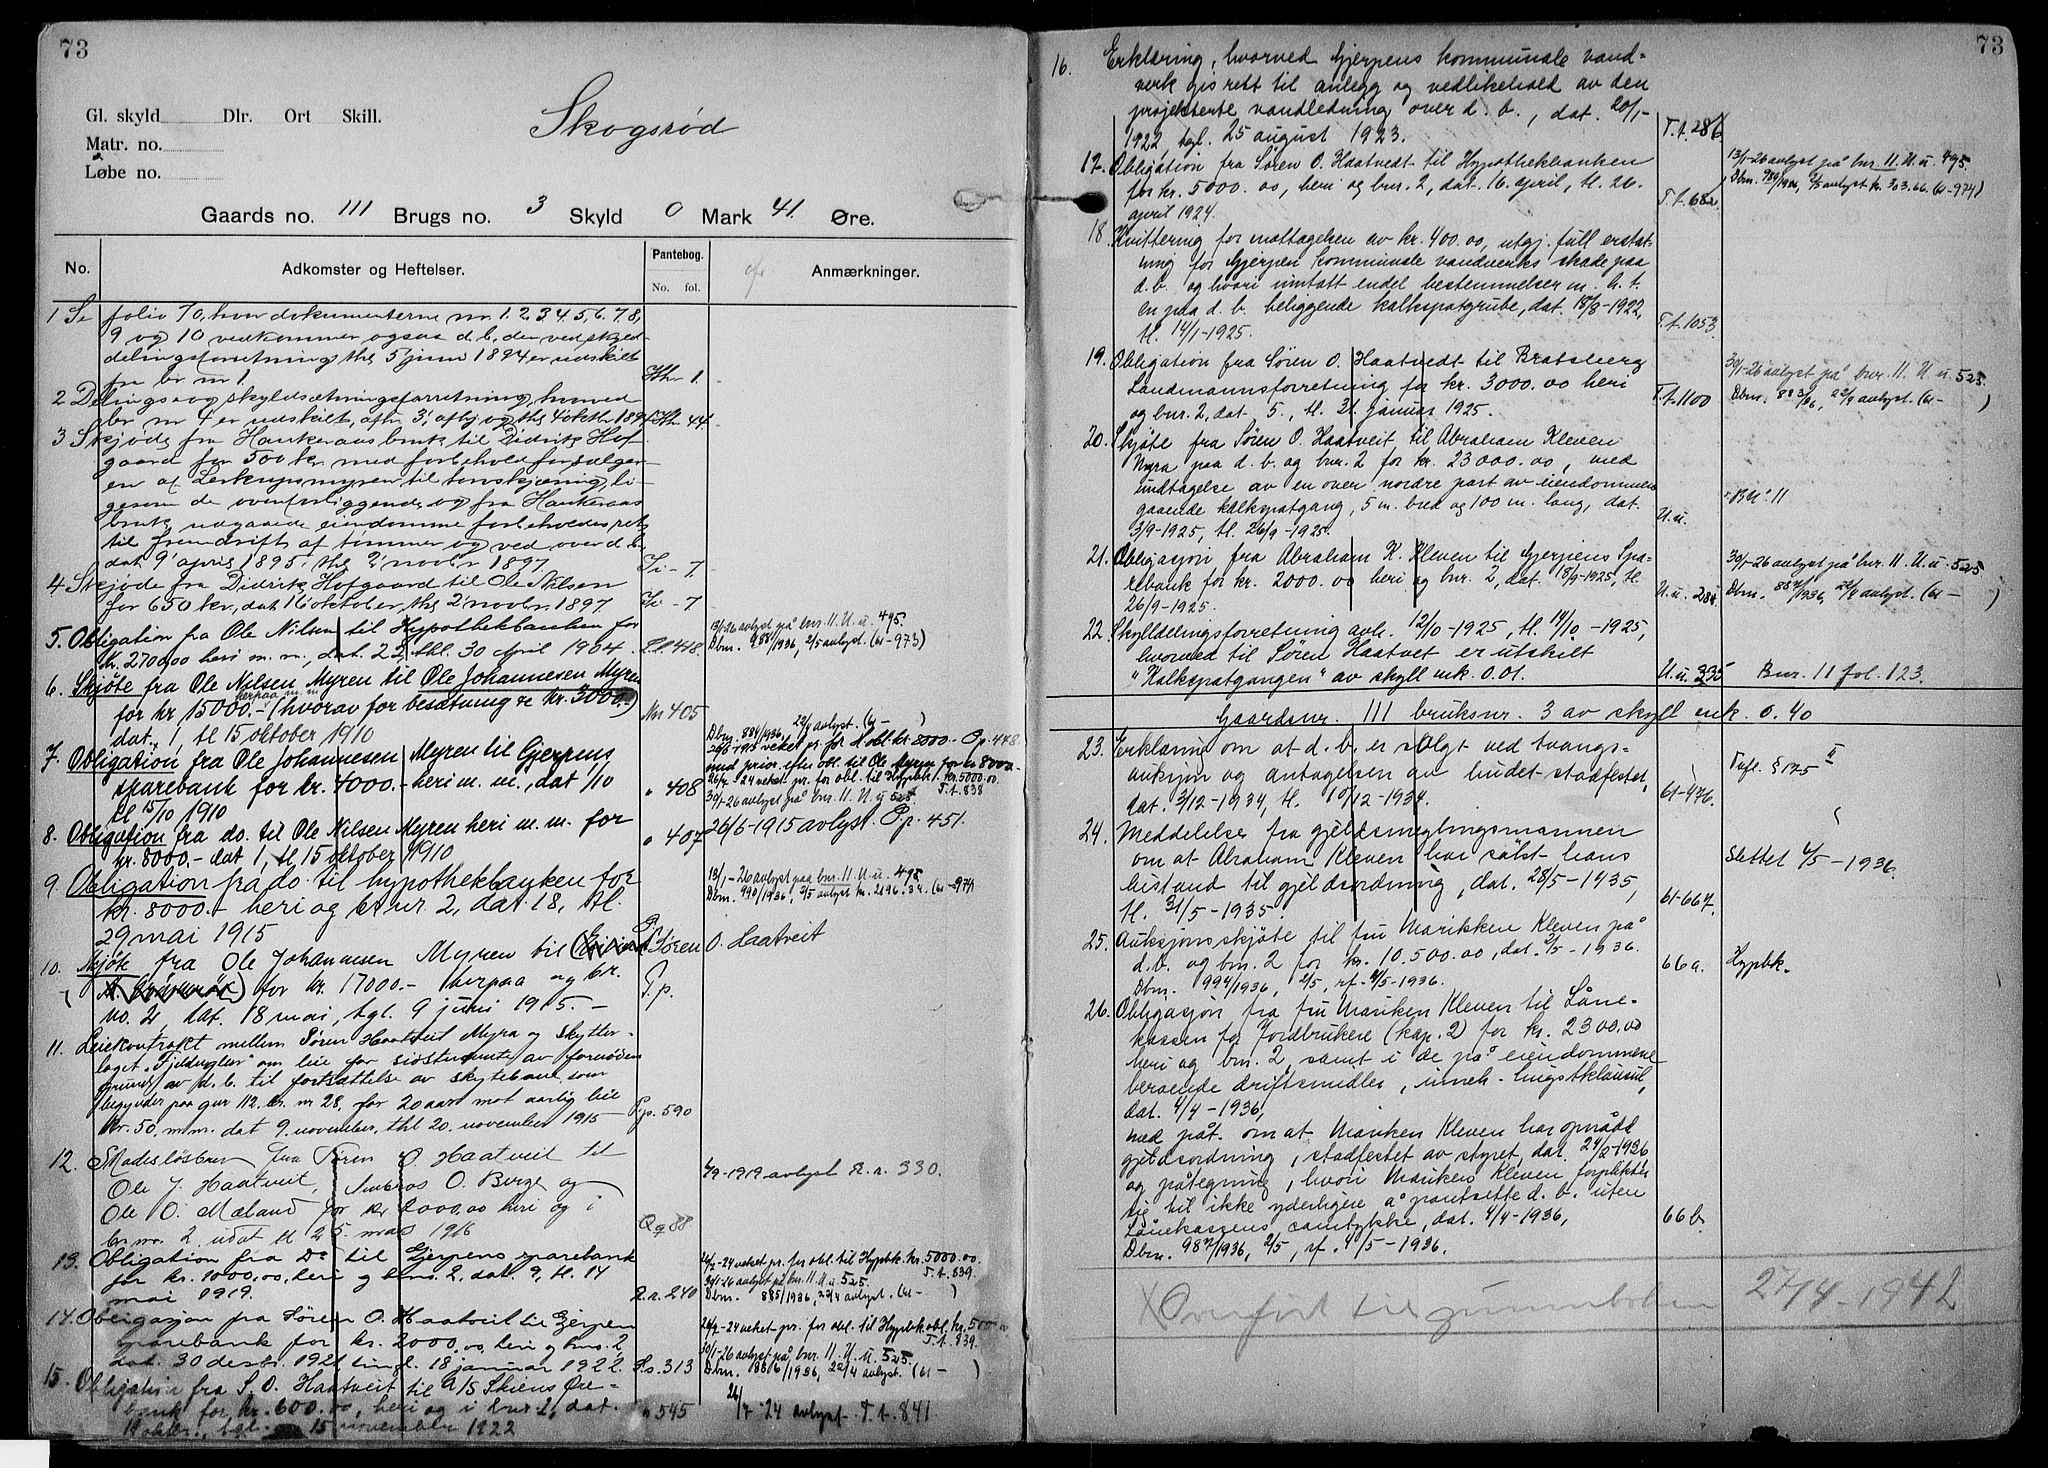 73
Gl. skyld Dlr. Ort Skill.
Matr. no.
Løbe no.
Skogsrød
Gaards no. 111 Brugs no. 3 Skyld 0 Mark 41 Øre.
No. Adkomster og Heftelser. Pantebog. No. fol. Anmærkninger.
1 Se folio 70, hvor dokumenterne nr. 1. 2. 3. 4. 5. 6. 7. 8,
9 og 10 vedkommer ogsaa d. b., der ved skyld-
delingsforretning thl. 5 juni 1894 er udskilt
fra br. nr 1. Hhr 1.
2 Delings og skyldsætningsforretning, hvorved
br nr 4 er udskilt, afh. 3', afhj og thl. 4' oktbr. 1894 Hhr 44.
3 Skjøde fra Hankeraasbruk til Didrik Hof
gaard for 500 kr med forbehold for sælger-
en af myren til torvskjæring li-
gesom de ovenforliggende og fra Hankeraas
bruk udgaaede eiendomme forbeholdes ret
til fremdrift af tømmer og ved over d. b.
dat 9' april 1895, thl. 2' novbr 1897. Hi - 7.
4 Skjøde fra Didrik Hofgaard til Ole Nilsen
for 650 kr, dat 16' oktober, thl. 2' novbr. 1897. Hi - 7
5. Obligation fra Ole Nilsen til Hypothekbanken for
Kr. 2700.00 heri m. m., dat. 22, thl. 30 April 1904. L.l. 418.
13/1-26 avlyst på bnr. 11. U. u. 495.
Dbnr. 988/1936, 2/5 avlyst. (61-973)
6. Skjøte fra Ole Nilsen Myren til Ole Johannesen Myren
herpaa m. m
for kr 15000.- (hvorav for besætning &c kr. 3000.-)
dat. 1, tl 15 oktober 1910 Nn 405
7. Obligation fra Ole Johannesen Myren til Gjerpens
sparebank for kr. 4000.- heri m. m., dat 1/10
tl 15/10 1910 " 408
Dbnr. 884/1936, 22/4 avlyst. (61- )
26/6 1915 veket pr. for 1 obl. kr. 8000.- Pp. 448.
med prior. efter obl. til Ole Myren for kr 8000.-
26/7 24 veket pr. for obl. til Hypbk. kr. 5000.00.
T. t. 838
30/1-26 avlyst på bnr. 11. U. u 525.
8. Obligation fra do. til Ole Nilsen Myren heri m. m. for
kr. 8000.- dat 1, tl 15 oktober 1910 " 407 26/6-1915 avlyst. Pp. 451.
9 Obligation fra do. til hypothekbanken for
kr. 8000.- heri og br nr. 2, dat. 18, tl.
29 mai 1915
13/1-26 avlyst paa bnr. 11. U. u. 495
Dbnr. 990/1936, 2/5 avlyst kr. 2196.34. (61-974)
10. Skjøte fra Ole Johannesen Myren til Søren O. Haatveit
for kr. 17000.- herpaa og br.
no. 2, dat. 18 mai, tgl. 9 juni 1915.- P.p.
11. Leiekontrakt mellem Søren Haatveit Myra og Skytter-
laget "Fjelduglen" om leie for sidstnævnte av fornøden
grund av d. b. til fortsættelse av skytebane som
begynder paa gnr 112. br. nr 28, for 20 aar mot aarlig leie
kr. 50. m. m. dat 9. november, thl 20. november 1915 - P.p. 590
12. Skadesløsbrev fra Søren O. Haatveit til
Ole J. Haatveit, Ambros O. Berge og
Ole O. Mæland for kr 2000.00 heri og i
br. nr. 2. udat tl 25. mars 1916 Qq 88
4/9-1919 avlyst R. r. 330.
13. Obligation fra Do til Gjerpens sparebank
for kr. 1000.00, heri og bnr. 2, dat. 9, tl. 14
mai 1919. R. r. 240
26/7-24 veket pr. for obl. til Hypbk. kr. 5000.00
T. t. 839.
30/1-26 avlyst på bnr. 11 U. u 525.
Dbnr. 885/1936, 22/4 avlyst. (61- )
14. Obligasjon fra Søren O. Haatveit til Gjerpen
sparebank for kr. 2000.00, heri og bnr. 2,
dat. 30 desbr. 1921 tingl. 18 januar 1922. S.s. 313
26/7-24 veket pr. for obl. til Hypbk. obl. kr. 5000.00
T. t. 839.
30/1-26 avlyst på bnr. 11. U. u. 525.
Dbnr. 886/1936, 22/4 avlyst. (61- )
15. Obligation fra S. O. Haatveit til A/S Skiens Øre-
bank for kr. 600.00, heri og i bnr. 2, dat.
19 oktbr., tgl. 15 november 1922 " 545 26/7 24 avlyst T. t. 841
73
16. Erklæring, hvorved Gjerpens kommunale vand-
verk gis rett til anlegg og vedlikehold av den
projekterte vandledning over d. b., dat. 20/1-
1922, tgl. 25 august 1923. T. t. 286
17. Obligation fra Søren O. Haatvedt til Hypothekbanken
for kr. 5000.00, heri og bnr. 2, dat. 16. april, tl. 26.
april 1924. T. t. 682.
13/1-26 avlyst på bnr. 11. U. u. 495.
Dbnr. 989/1936, 2/5 avlyst kr. 303.66. (61-974)
18 Kvittering for mottagelsen av kr. 400.00, utgj. full erstat-
ning for Gjerpen kommunale vandverks skade paa
d. b. og hvori inntatt endel bestemmelser m. h. t.
en paa d. b. beliggende kalkspatgrube, dat. 18/8-1922,
tl. 14/1-1925. T. t. 1053
19. Obligation fra Søren O. Haatvedt til Bratsberg
Landmannsforretning for kr. 3000.00 heri
og bnr. 2, dat. 5., tl. 31. januar 1925. T. t. 1100
30/1-26 avlyst på bnr. 11. U. u 525.
Dbnr. 883/36, 22/4 avlyst. (61- )
20. Skjøte fra Søren O. Haatveit til Abraham Kleven
Myra paa d. b. og bnr. 2 for kr. 23000.00, med
undtagelse av en over nordre part av eiendommen
gaaende kalkspatgang, 5 m. bred og 100 m. lang, dat.
3/9-1925, tl. 26/9-1925. U. u. BN: 11
21. Obligasjon fra Abraham K. Kleven til Gjerpens Spa-
rebank for kr. 2000.00 heri og bnr. 2, dat. 18/9-1925, tl.
26/9-1925. U. u. 284.
30/1-26 avlyst på bnr. 11. U. u 525.
Dbnr. 887/1936, 22/4 avlyst. (61- )
22. Skylldelingsforretning avh. 12/10-1925, tl. 14/10-1925,
hvorved til Søren Haatvet er utskilt
"Kalkspatgangen" av skyll mk. 0.01. U. u. 335 Bnr. 11 fol. 123.
Gaardsnr. 111 bruksnr. 3 av skyll mk. 0.40
23. Erklæring om at d. b. er solgt ved tvangs-
auksjon og antagelsen av budet stadfestet,
dat. 3/12-1934, tl. 10/12-1934. 61-476. Tvfl. § 175 II
24. Meddelelse fra gjeldsmeglingsmannen
om at Abraham Kleven har søkt hans
bistand til gjeldsordning, dat. 28/5-1935,
tl. 31/5-1935. 61-667. Slettet 4/5-1936.
25. Auksjonsskjøte til fru Marikken Kleven på
d. b. og bnr. 2 for kr. 10.500.00, dat. 2/5-1936.
Dbnr. 994/1936, 2/5, rf. 4/5-1936. 66a. Hypbk.
26. Obligasjon fra fru Mariken Kleven til Låne-
kassen for Jordbrukere (kap. 2) for kr. 2300.00
heri og bnr. 2, samt i de på eiendommene
beroende driftsmidler, inneh. tingstklausul,
dat. 4/4-1936,
med påt. om at Mariken Kleven har opnådd
gjeldsordning, stadfestet av styret, dat. 24/2-1936
og påtegning, hvori Mariken Kleven forplikter
sig til ikke yderligere å pantsette d. b. uten
Lånekassens samtykke, dat. 4/4-1936,
Dbnr. 987/1936, 2/5, rf. 4/5-1936. 66b.
Overført til grunnboken 27/4-1942